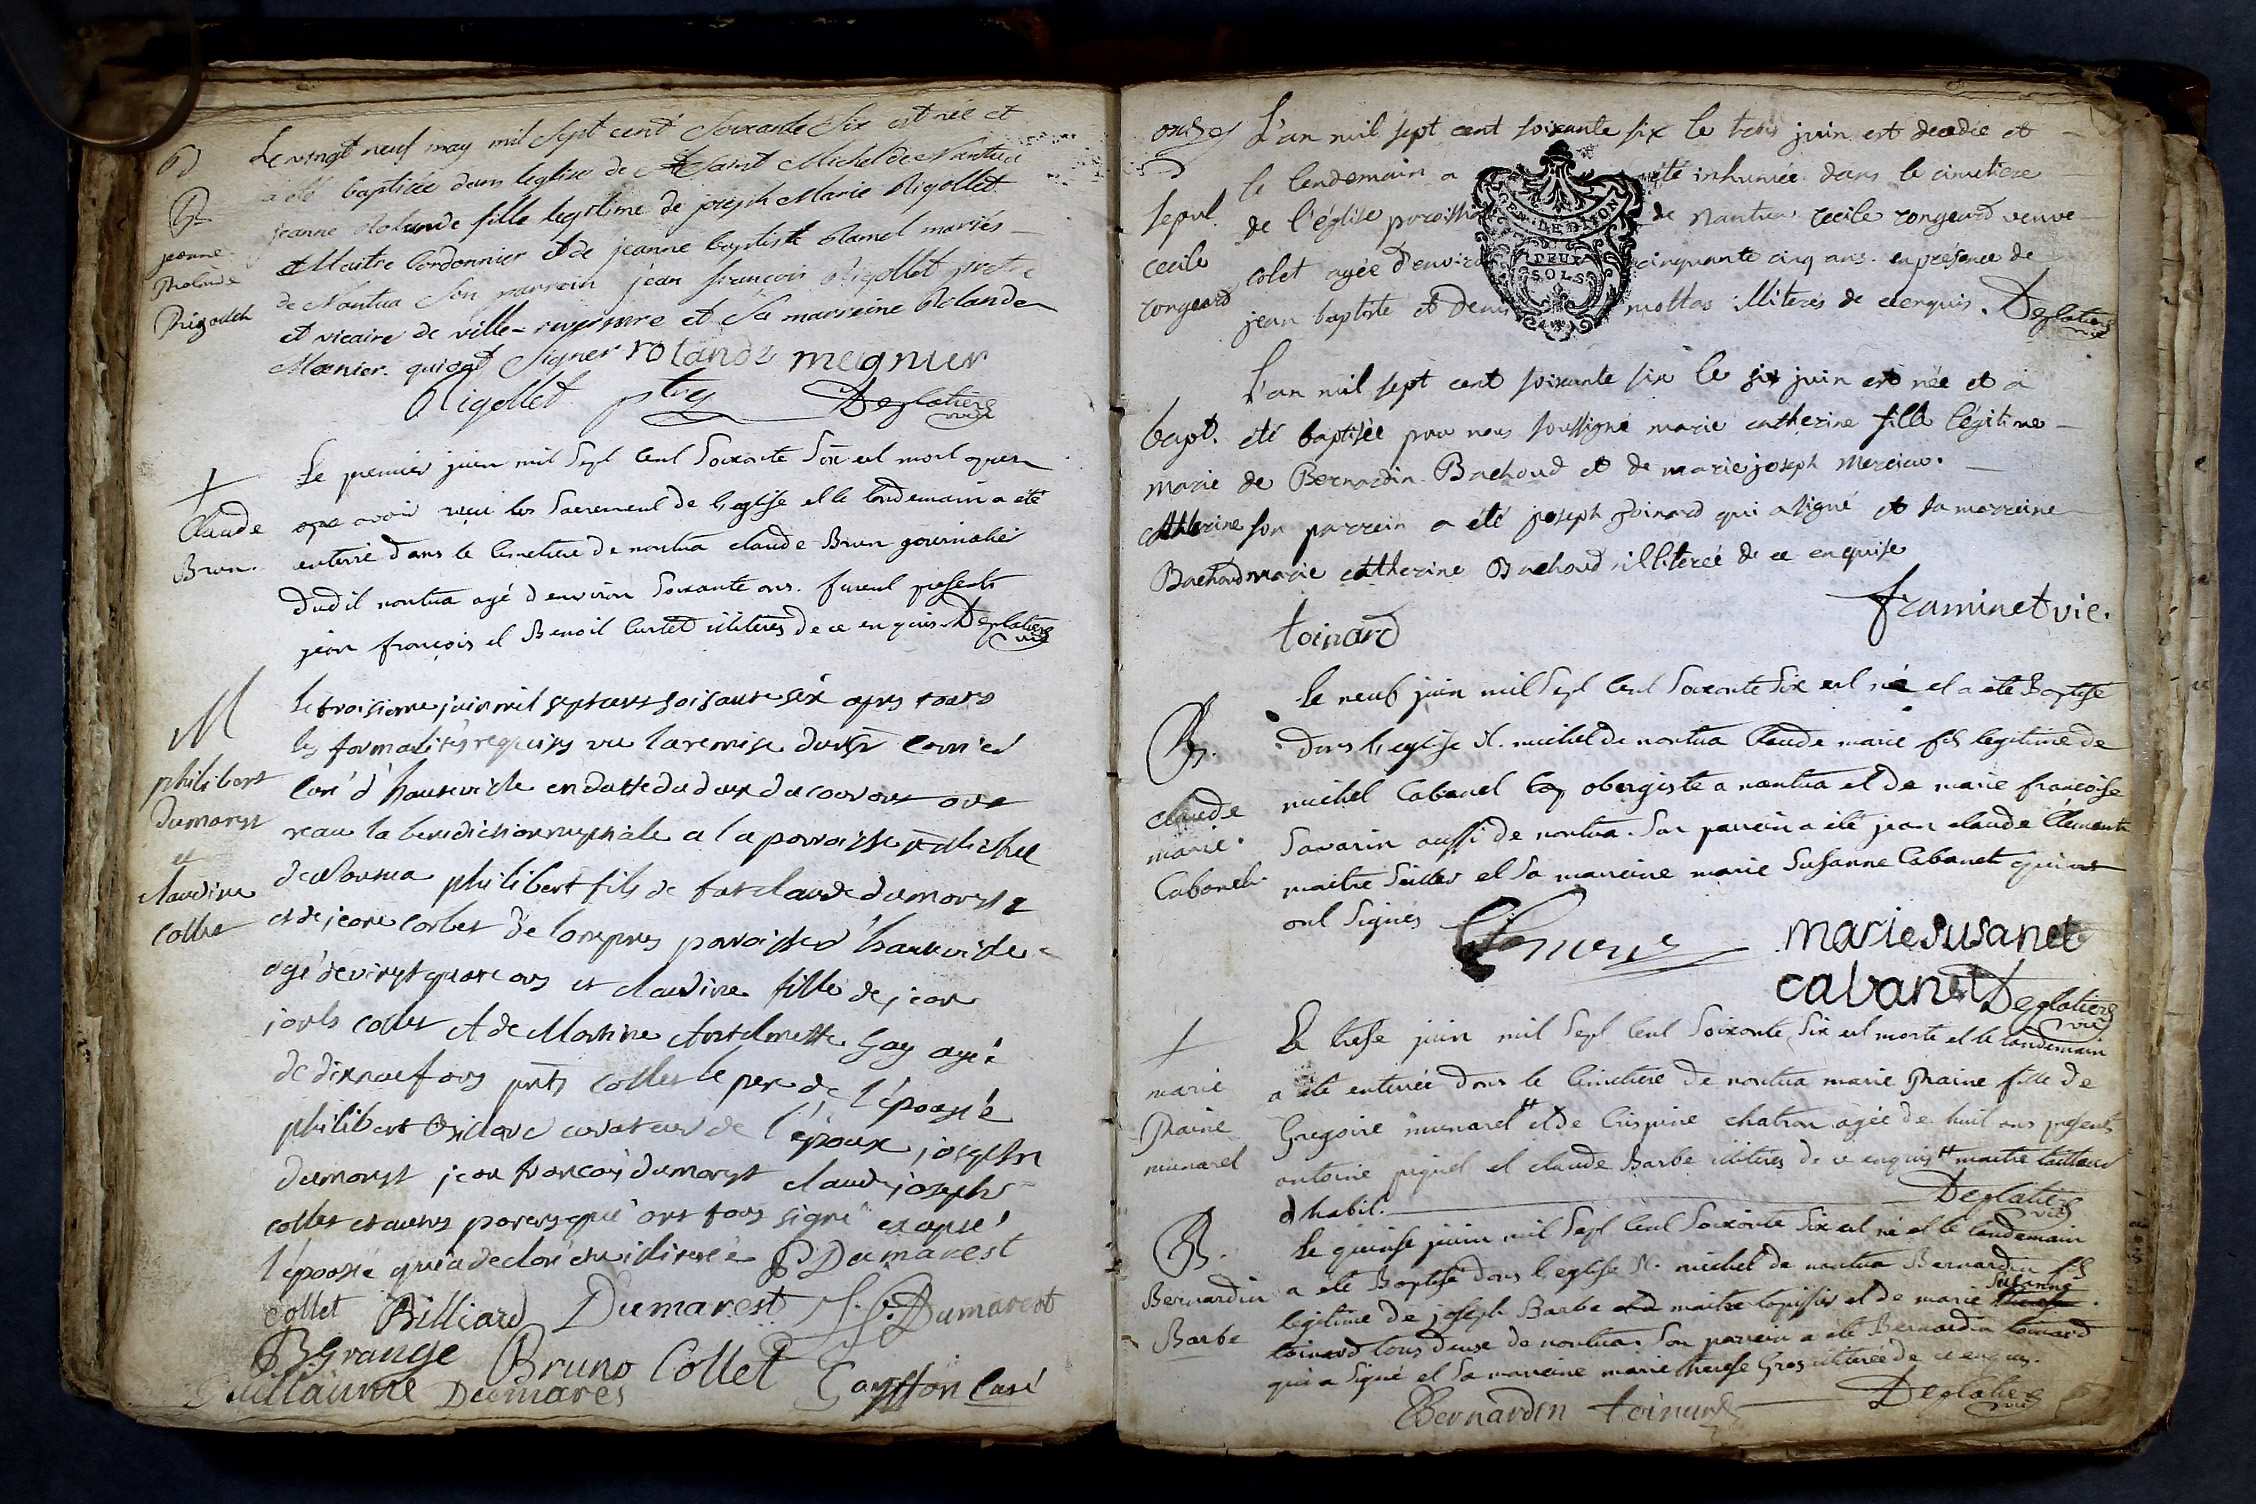 Le vingt neuf may mil Sept cent Soixante Six est née et
a été baptisée dans leglise de Saint Michel de Nantua
jeanne Rolande fille legitime de joseph Marie Rigollet
Maitre Cordonnier et de jeanne baptiste Ramel mariés
de Nantua Son parrein jean francois Rigollet pretre
et vicaire de ville-reversure et Sa marreine Rolande
Monier. qui ont Signer rolande megnier
Rigollet ptre Deglatiers vic
B
jeanne
Rolande
Rigollet
Le premier juin mil Sept Cent Soixante Six est mort apres
avoir reçu les Sacrement de l'eglise et le lendemain a été
enterré dans le Cimetiere de nantua claude Brun journalier
dudit nantua agé d'environ Soixante ans. furent presents
jean françois et Benoit Curtet illiterés de ce enquis Deglatiers vic
Claude
Brun.
Le troisieme juin mil sept cent soisante six apres toutes
les formalités requises vu la remise du Sr
Curé d'hauteville en datte du deux du courant ont
recu la benediction nuptiale a la parroisse st Michel
de Nantua philibert fils de fut claude dumarest
et de jeane corbet de lonepnes parroisse d'hauteville
agé de vingt quatre ans et claudine fille de jean
louis collet et de Martine Anthelmette Gay agée
de dix neuf ans pnts collet le pere de l'épousée
philibert curateur de l'époux joseph
dumarest jean francois dumarest claude joseph
collet et autres parens qui ont tous signé excepté
l'épousée qui a declaré etre illiterée P Dumarest
collet Billiard Dumarest J. f. Dumarest
B Grange Bruno Collet Gauffon Curé
Guillaume Dumares
M
philibert
Dumarest
et
claudine
Collet
L'an mil sept cent soixante six le trois juin est decedée et
le lendemain a été inhumée dans le cimetiere
de l'église paroissiale de nantua cecile rongeard veuve
colet agée d'environ cinquante cinq ans. en présence de
jean baptiste et Denis mottas illiterés de ce enquis. Deglatiers vic
GEN. DE DIJON
DEUX
SOLS
onze
sepul.
cecile
rongeard
L'an mil sept cent soixante six le six juin est née et a
été baptisée par nous soussigné marie catherine fille légitime
de Bernardin Bachoud et de marie joseph Mercier.
son parrein a été joseph Toinard qui a signé et sa marreine
marie catherine Bachoud illiterée de ce enquise
toinard framinet vic.
bapt.
marie
catherine
Bachoud
Le neuf juin mil Sept Cent Soixante Six est né et a été Baptisé
dans l'eglise St. michel de nantua Claude marie fils legitime de
michel Cabanet obergiste a nantua et de marie francoise
Savarin aussi de nantua. Son parrein a été jean claude Clement
maitre Sellier et Sa mareine marie Susanne Cabanet qui
ont Signés Clement marie susanet
cabanet Deglatiers vic
B.
claude
marie.
Cabanet.
Le treise juin mil Sept Cent Soixante Six est morte et le lendemain
a été enterrée dans le Cimetiere de nantua marie Praine fille de
Gregoire munaret # et de Crispine chatron agée de huit ans presents
antoine piquet et claude Barbe illiterés de ce enquis # maitre tailleur
d'habit. Deglatiers vic
marie
Praine
munaret
Le quinse juin mil Sept Cent Soixante Six est né et le lendemain
a été Baptisé dans l'eglise St. michel de nantua Bernardin fils
legitime de joseph Barbe maitre tapissier et de marie Susanne
toinard tous deux de nantua. Son parrein a été Bernardin toinard
qui a Signé et Sa mareine marie therese Gros illiterée de ce enquis.
Bernardin toinard Deglatiers vic
B.
Bernardin
Barbe